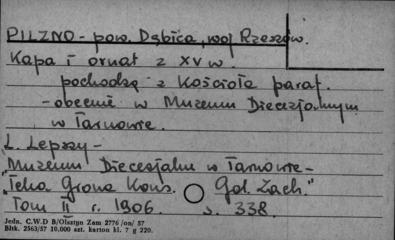 PILZNO - pow. Dąbica, woj Rzeszów.
Kapa i ornat z XV w.
pochodzą z Kościoła paraf.
- obecnie w Muzeum Diecezjalnym
w Tarnowie.
L. Lepszy -
"Muzeum Diecezjalne w Tarnowie -
"Teka Grona Kons. Gal. Zach."
Tom II r. 1906. s. 338.
Jedn. C.W.D B/Olsztyn Zam 2776 /on/ 57
Bltk. 2563/57 10,000 szt. karton kl. 7 g 220.